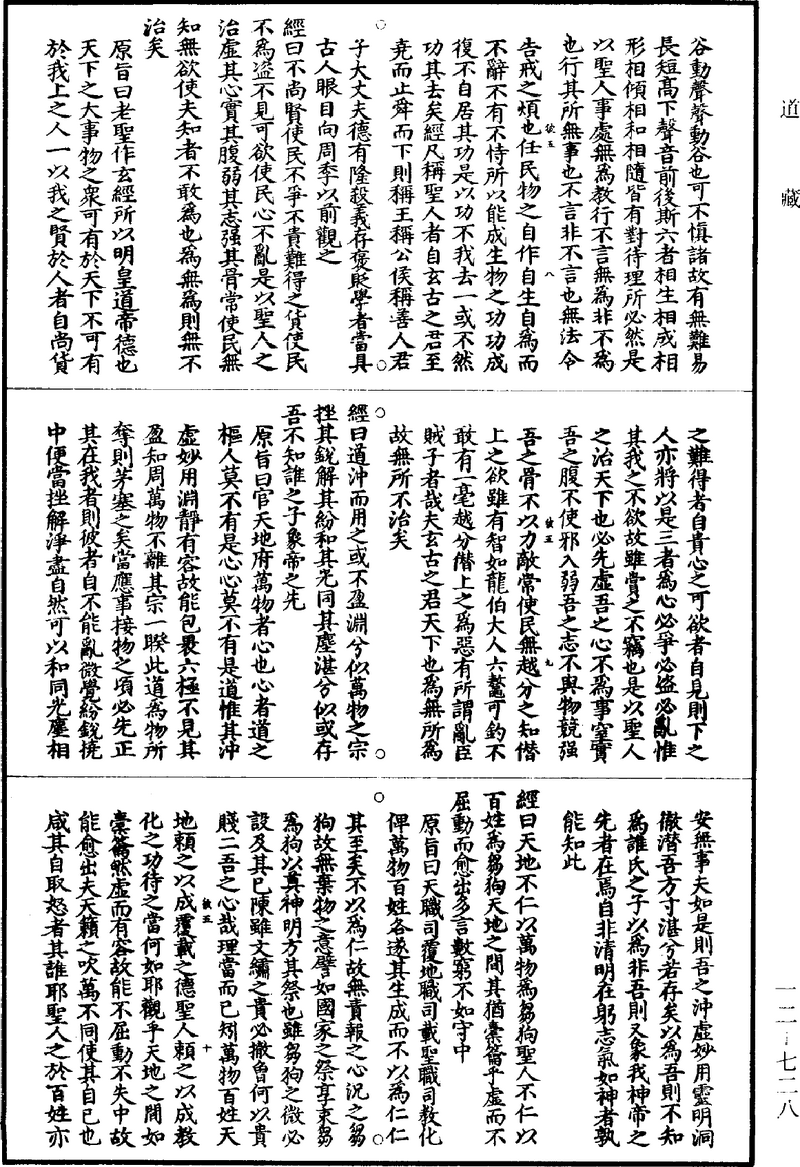 道藏
一二—七二八
谷動聲聲動谷也可不慎諸故有無難易
長短高下聲音前後斯六者相生相成相
形相傾相和相隨皆有對待理所必然是
以聖人事處無為教行不言無為非不為
也行其所無事也不言非不言也無法令
告戒之煩也任民物之自作自生自為而
不辭不有不恃所以能成生物之功功成
復不自居其功是以功不我去一或不然
功其去矣經凡稱聖人者自玄古之君至
堯而止舜而下則稱王稱公侯稱善人君
子大丈夫德有隆殺義存褒貶學者當具
古人眼目向周季以前觀之
經曰不尚賢使民不爭不貴難得之貨使民
不為盗不見可欲使民心不亂是以聖人之
治虛其心實其腹弱其志强其骨常使民無
知無欲使夫知者不敢為也為無為則無不
治矣
原旨曰老聖作玄經所以明皇道帝德也
天下之大事物之衆可有於天下不可有
於我上之人一以我之賢於人者自尚貨
之難得者自貴心之可欲者自見則下之
人亦將以是三者為心必爭必盗必亂惟
其我之不欲故雖賞之不竊也是以聖人
之治天下也必先虛吾之心不為事窒實
吾之腹不使邪入弱吾之志不與物競强
吾之骨不以力敵常使民無越分之知僭
上之欲雖有智如龍伯大人六鼇可釣不
敢有一毫越分僭上之為惡有所謂亂臣
賊子者哉夫玄古之君天下也為無所為
故無所不治矣
經曰道沖而用之或不盈淵兮似萬物之宗
挫其銳解其紛和其光同其塵湛兮似或存
吾不知誰之子象帝之先
原旨曰官天地府萬物者心也心者道之
樞人莫不有是心心莫不有是道惟其沖
虛妙用淵靜有容故能包裹六極不見其
盈知周萬物不離其宗一睽此道為物所
奪則茅塞之矣當應事接物之頃必先正
其在我者則彼者自不能亂微覺紛銳撓
中便當挫解淨盡自然可以和同光塵相
安無事夫如是則吾之沖虛妙用靈明洞
徹潛吾方寸湛兮若存矣以為吾則不知
為誰氏之子以為非吾則又象我神帝之
先者在焉自非清明在躬志氣如神者孰
能知此
經曰天地不仁以萬物為芻狗聖人不仁以
百姓為芻狗天地之間其猶橐籥乎虛而不
屈動而愈出多言數窮不如守中
原旨曰天職司覆地職司載聖職司教化
俾萬物百姓各遂其生成而不以為仁仁
其至矣不以為仁故無責報之心況之芻
狗故無棄物之意譬如國家之祭享束芻
為狗以奠神明方其祭也雖芻狗之微必
設及其已陳雖文繡之貴必撤曾何以貴
賤二吾之心哉理當而已矧萬物百姓天
地賴之以成覆載之德聖人賴之以成教
化之功待之當何如耶觀乎天地之間如
橐籥然虛而有容故能不屈動不失中故
能愈出夫天籟之吹萬不同使其自已也
咸其自取怒者其誰耶聖人之於百姓亦